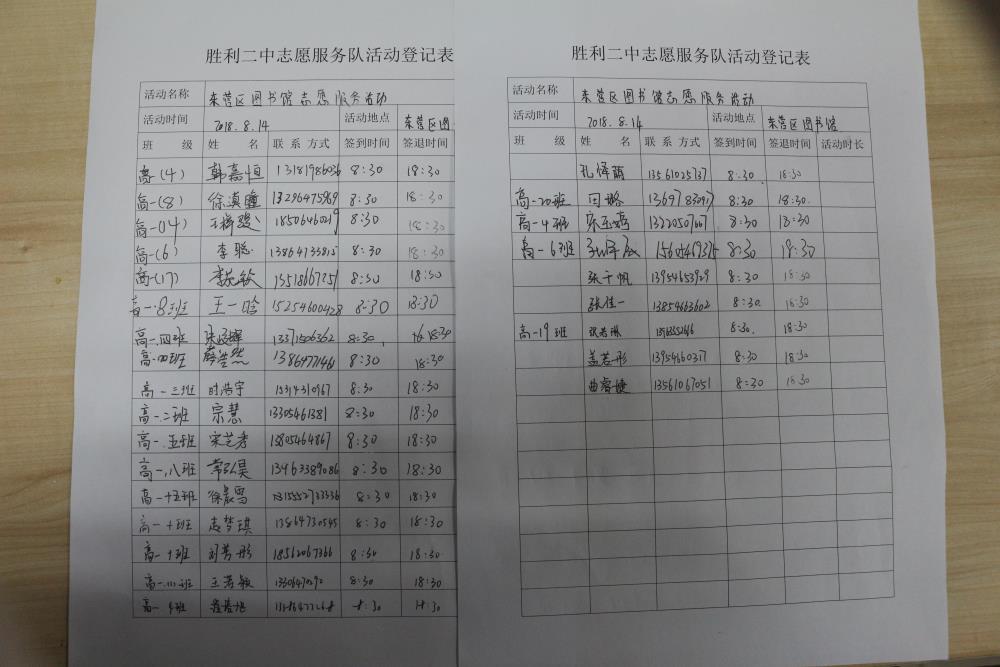 胜利二中志愿服务队活动登记表
活动名称 东营区图书馆志愿服务活动
活动时间 2018.8.14 活动地点 东营区图
班 级 姓 名 联系方式 签到时间 签退时间
高一(4) 韩嘉恒 13181986036 8:30 18:30
高一(8) 徐滇 13296475969 8:30 18:30
高一(14) 王梓骏 18506460219 8:30 18:30
高一(6) 李聪 13864133815 8:30 18:30
高一(17) 13518667251 8:30 18:30
高一.8班 王一晗 15254600428 8:30 18:30
高一.四班 13371506362 8:30 18:30
高一.四班 薛浩然 13864771461 8:30 18:30
高一三班 时浩宇 15314310967 8:30 18:30
高一.二班 宗慧 13305461381 8:30 18:30
高一.五班 宋艺秀 13805464867 8:30 18:30
高一.八班 常弘昊 13463389086 8:30 18:30
高一十五班 徐晨雪 8:30 18:30
高一十班 孟梦琪 13864730545 8:30 18:30
高一十班 刘若彤 18562067366 8:30 18:30
高一.三班 王若敏 13306470292 8:30 18:30
高一 班 8:30 18:30
胜利二中志愿服务队活动登记表
活动名称 东营区图书馆志愿服务活动
活动时间 2018.8.14 活动地点 东营区图书馆
班 级 姓 名 联系方式 签到时间 签退时间 活动时长
孔怿 13561025737 8:30 18:30
高一20班 田璐 13697183091 8:30 18:30
高一4班 宋玉婷 13220507667 8:30 18:30
高一6班 8:30 18:30
张千帆 13954653929 8:30 18:30
张佳一 13854663602 8:30 18:30
高一19班 8:30 18:30
盖若彤 13954660317 8:30 18:30
曲睿婕 13561067051 8:30 18:30